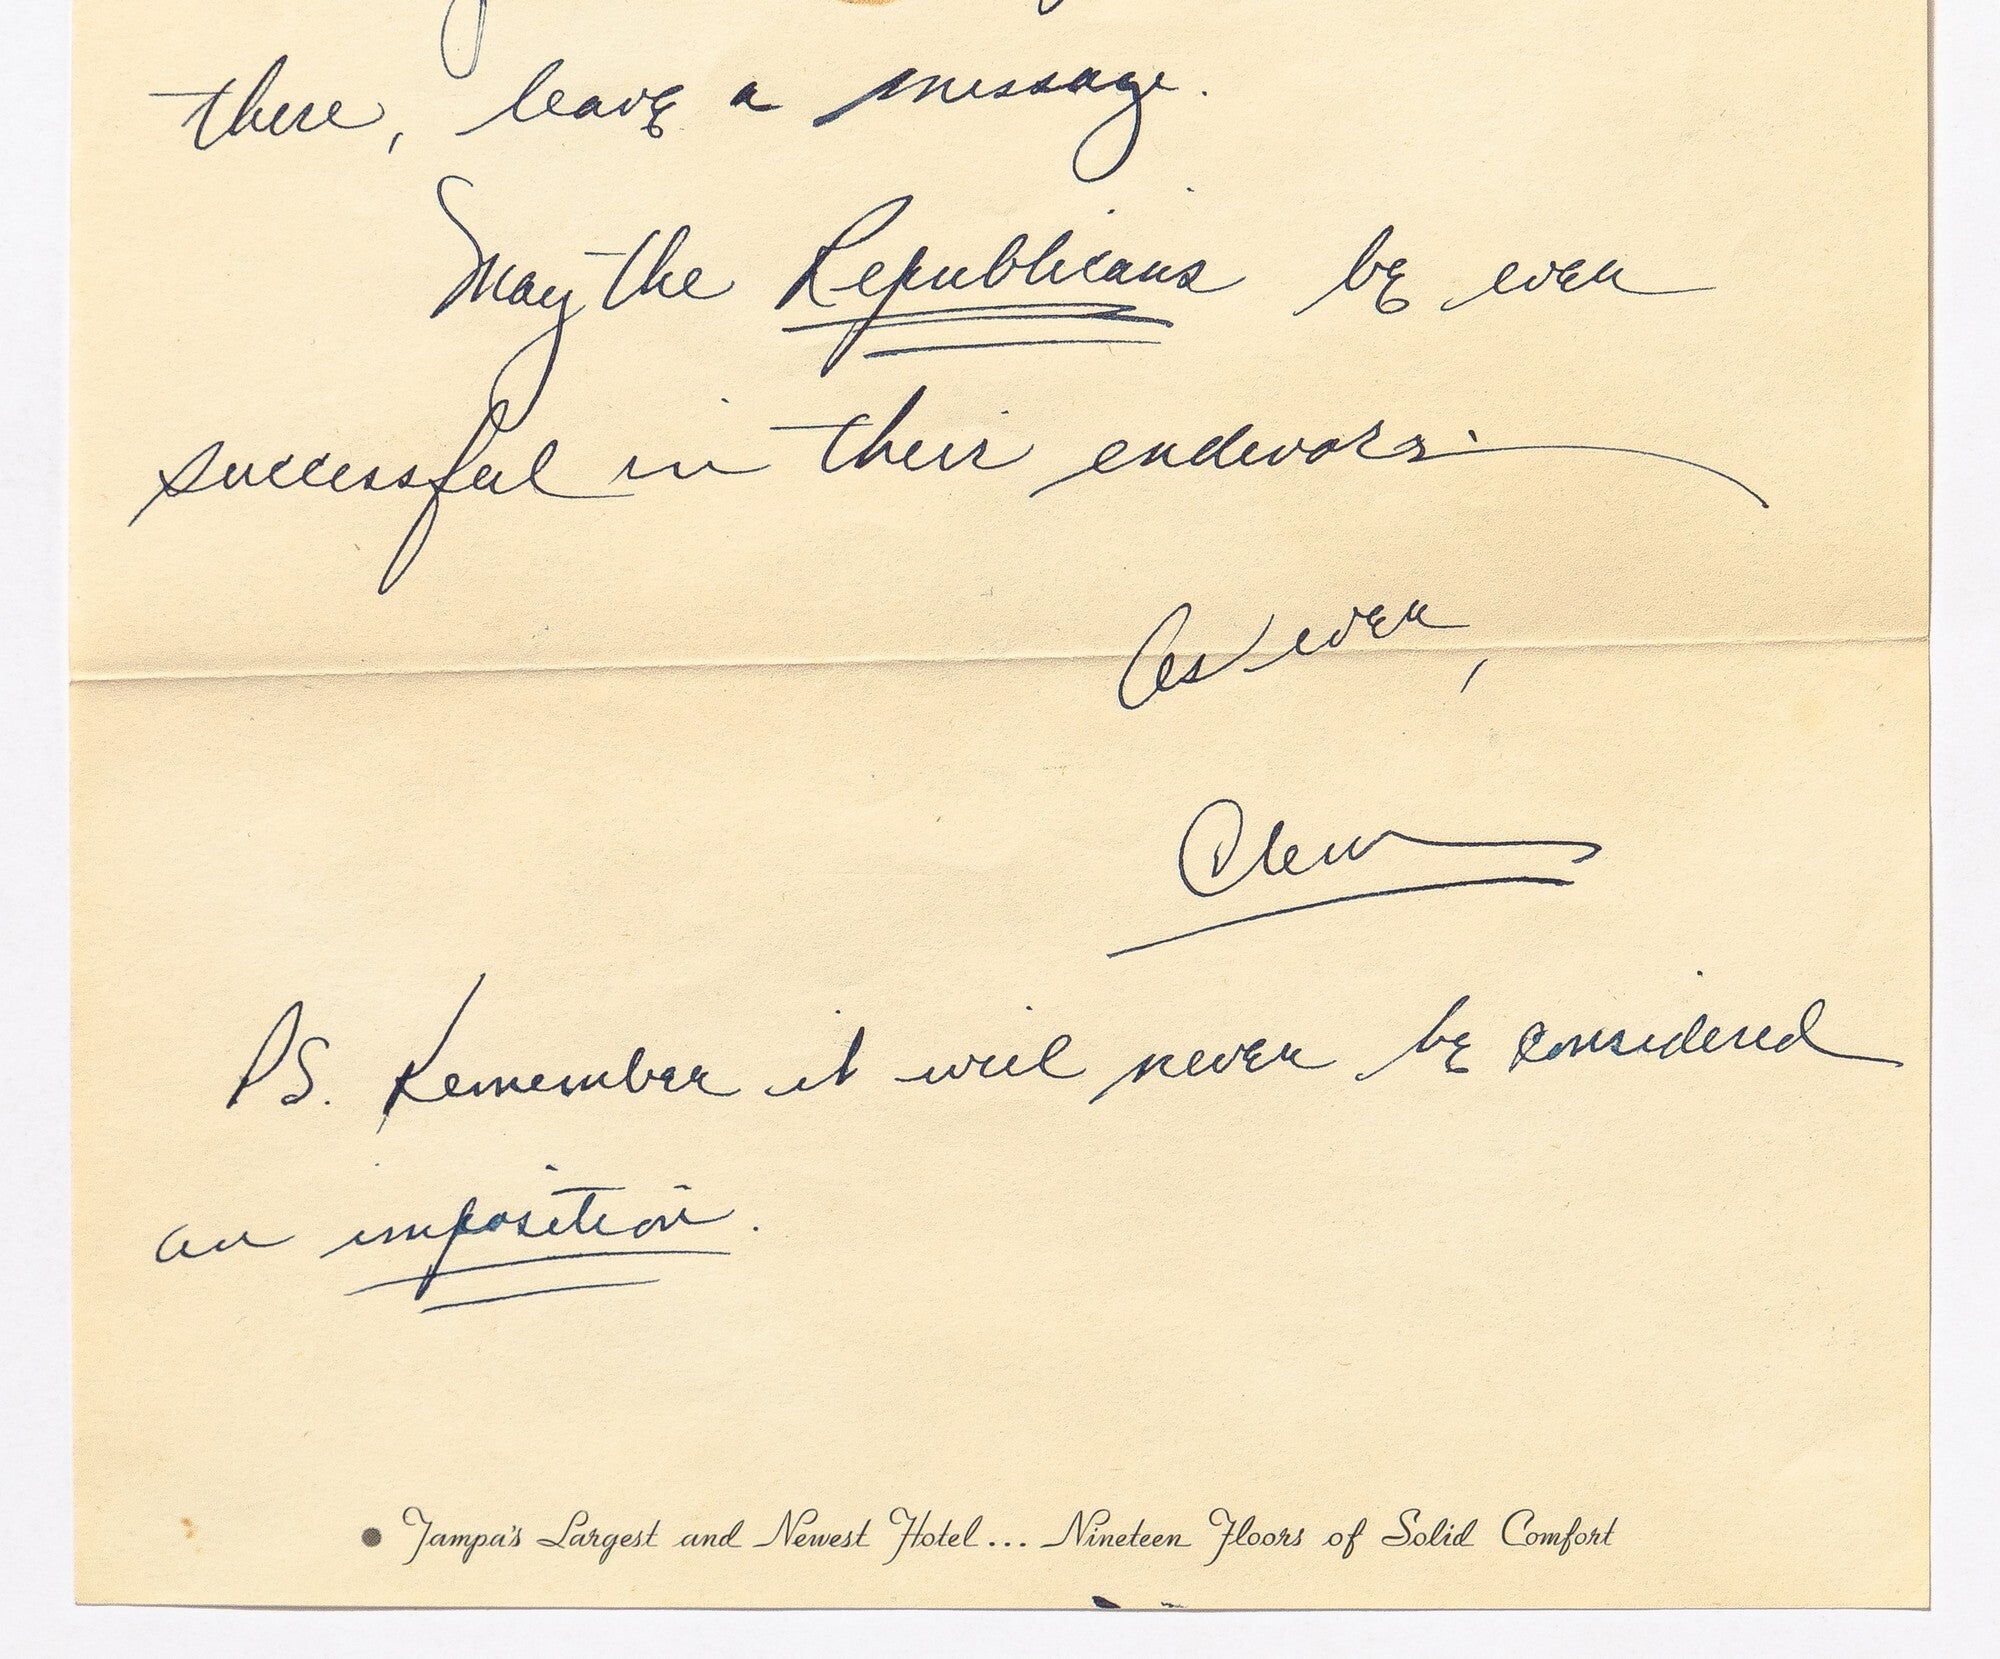 there, leave a message.
May the Republicans be ever
successful in their endevors.
As ever,
Clem
PS. Remember it will never be considered
an imposition.
Tampa's Largest and Newest Hotel... Nineteen Floors of Solid Comfort